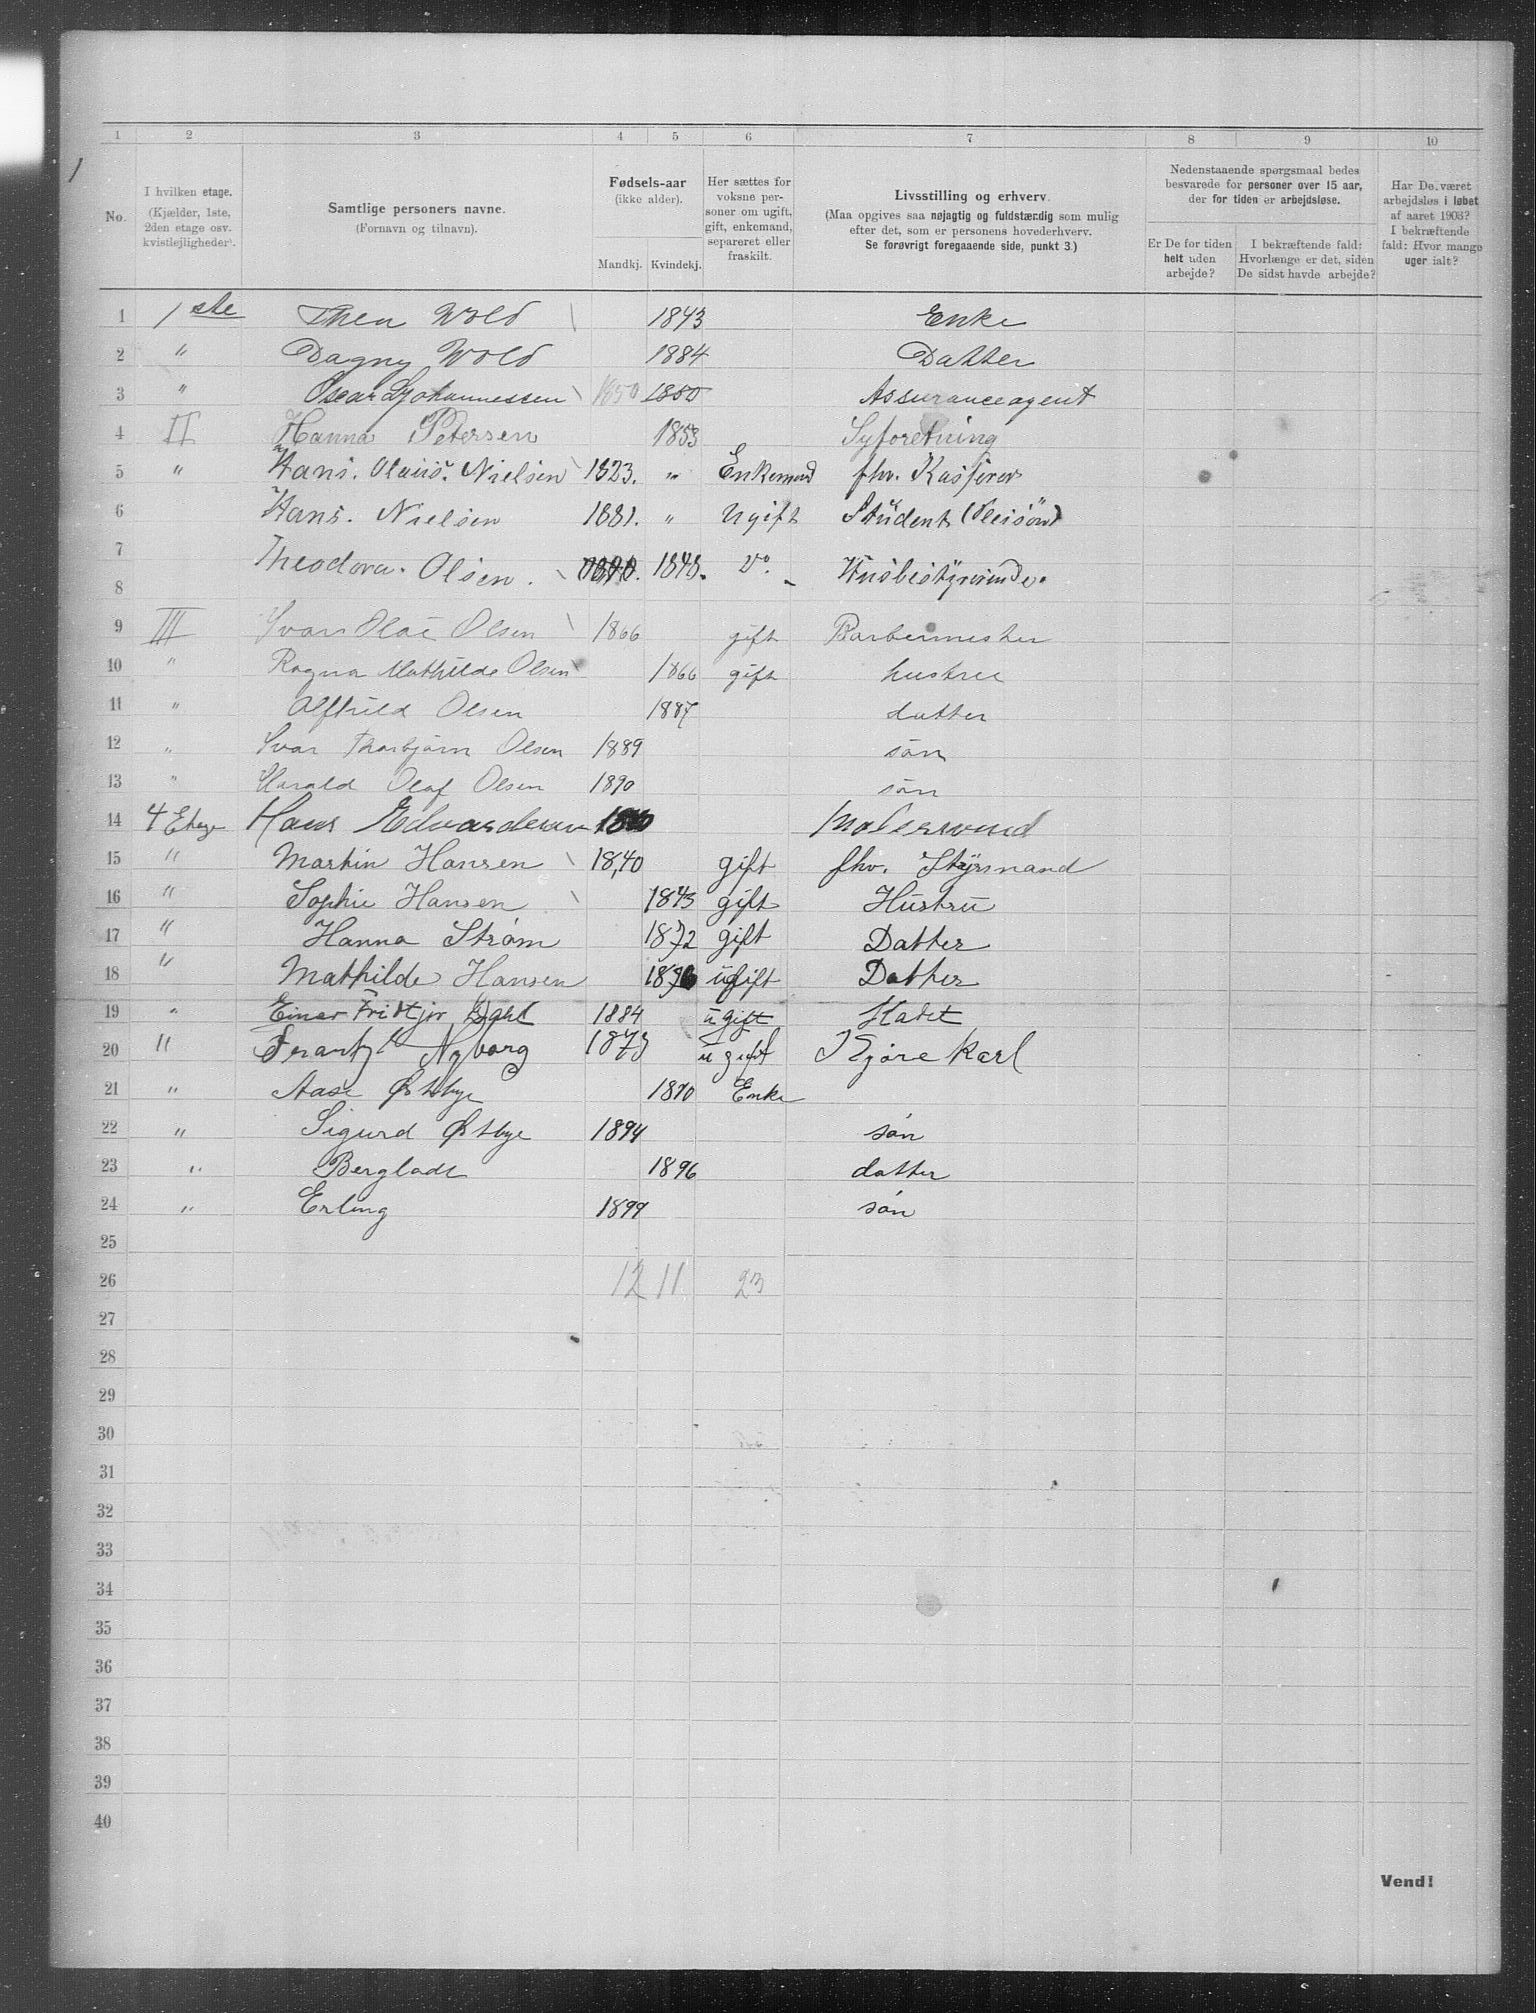 1
1 2 3 4 5 6 7 8 9 10
No.
I hvilken etage.
(Kjælder, 1ste,
2den etage osv.
kvistlejligheder).
Samtlige personers navne.
(Fornavn og tilnavn).
Fødsels-aar
(ikke alder).
Mandkj. Kvindekj.
Her sættes for
voksne per-
soner om ugift,
gift, enkemand,
separeret eller
fraskilt.
Livsstilling og erhverv.
(Maa opgives saa nøjagtig og fuldstændig som mulig
efter det, som er personens hovederhverv.
Se forøvrigt foregaaende side, punkt 3.)
Nedenstaaende spørgsmaal bedes
besvarede for personer over 15 aar,
der for tiden er arbejdsløse.
Er De for tiden
helt uden
arbejde?
I bekræftende fald:
Hvorlænge er det, siden
De sidst havde arbejde?
Har De været
arbejdsløs i løbet
af aaret 1903?
I bekræftende
fald: Hvor mange
uger ialt?
1 1ste Wold 1843 Enke
2 " Dagny Wold 1884 Datter
3 " Oscar Johannessen 1850 1850 Assuranceagent
4 II Hanna Petersen 1853 Syforetning
5 " Hans. Olaus. Nielsen 1823. " Enkemand fhv. Kasserer
6 Hans. Nielsen 1881. " Ugift Student (Pleisøn)
7 Theodora. Olsen. 1848. Do. Husbestyrerinde.
8
9 III Ivar Olai Olsen 1866 gift Barbermester
10 " Ragna Mathilde Olsen 1866 gift hustru
11 " Alfhild Olsen 1887 datter
12 " Ivar Thorbjørn Olsen 1889 søn
13 " Harald Olaf Olsen 1890 søn
14 4 Etage Hans Edvardsen Malersvend
15 " Martin Hansen 1840 gift fhv. Styrmand
16 " Sophie Hansen 1843 gift Hustru
17 " Hanna Strøm 1872 gift Datter
18 " Mathilde Hansen ugift Datter
19 " Einar Fridtjov 1884 ugift Kadet
20 " Frantz Nyborg 1873 ugift Kjørekarl
21 " Aase Østbye 1870 Enke
22 " Sigurd Østbye 1894 søn
23 " Bergladt 1896 datter
24 " Erling 1899 søn
25
26 12 11 23
27
28
29
30
31
32
33
34
35
36
37
38
39
40
Vend!